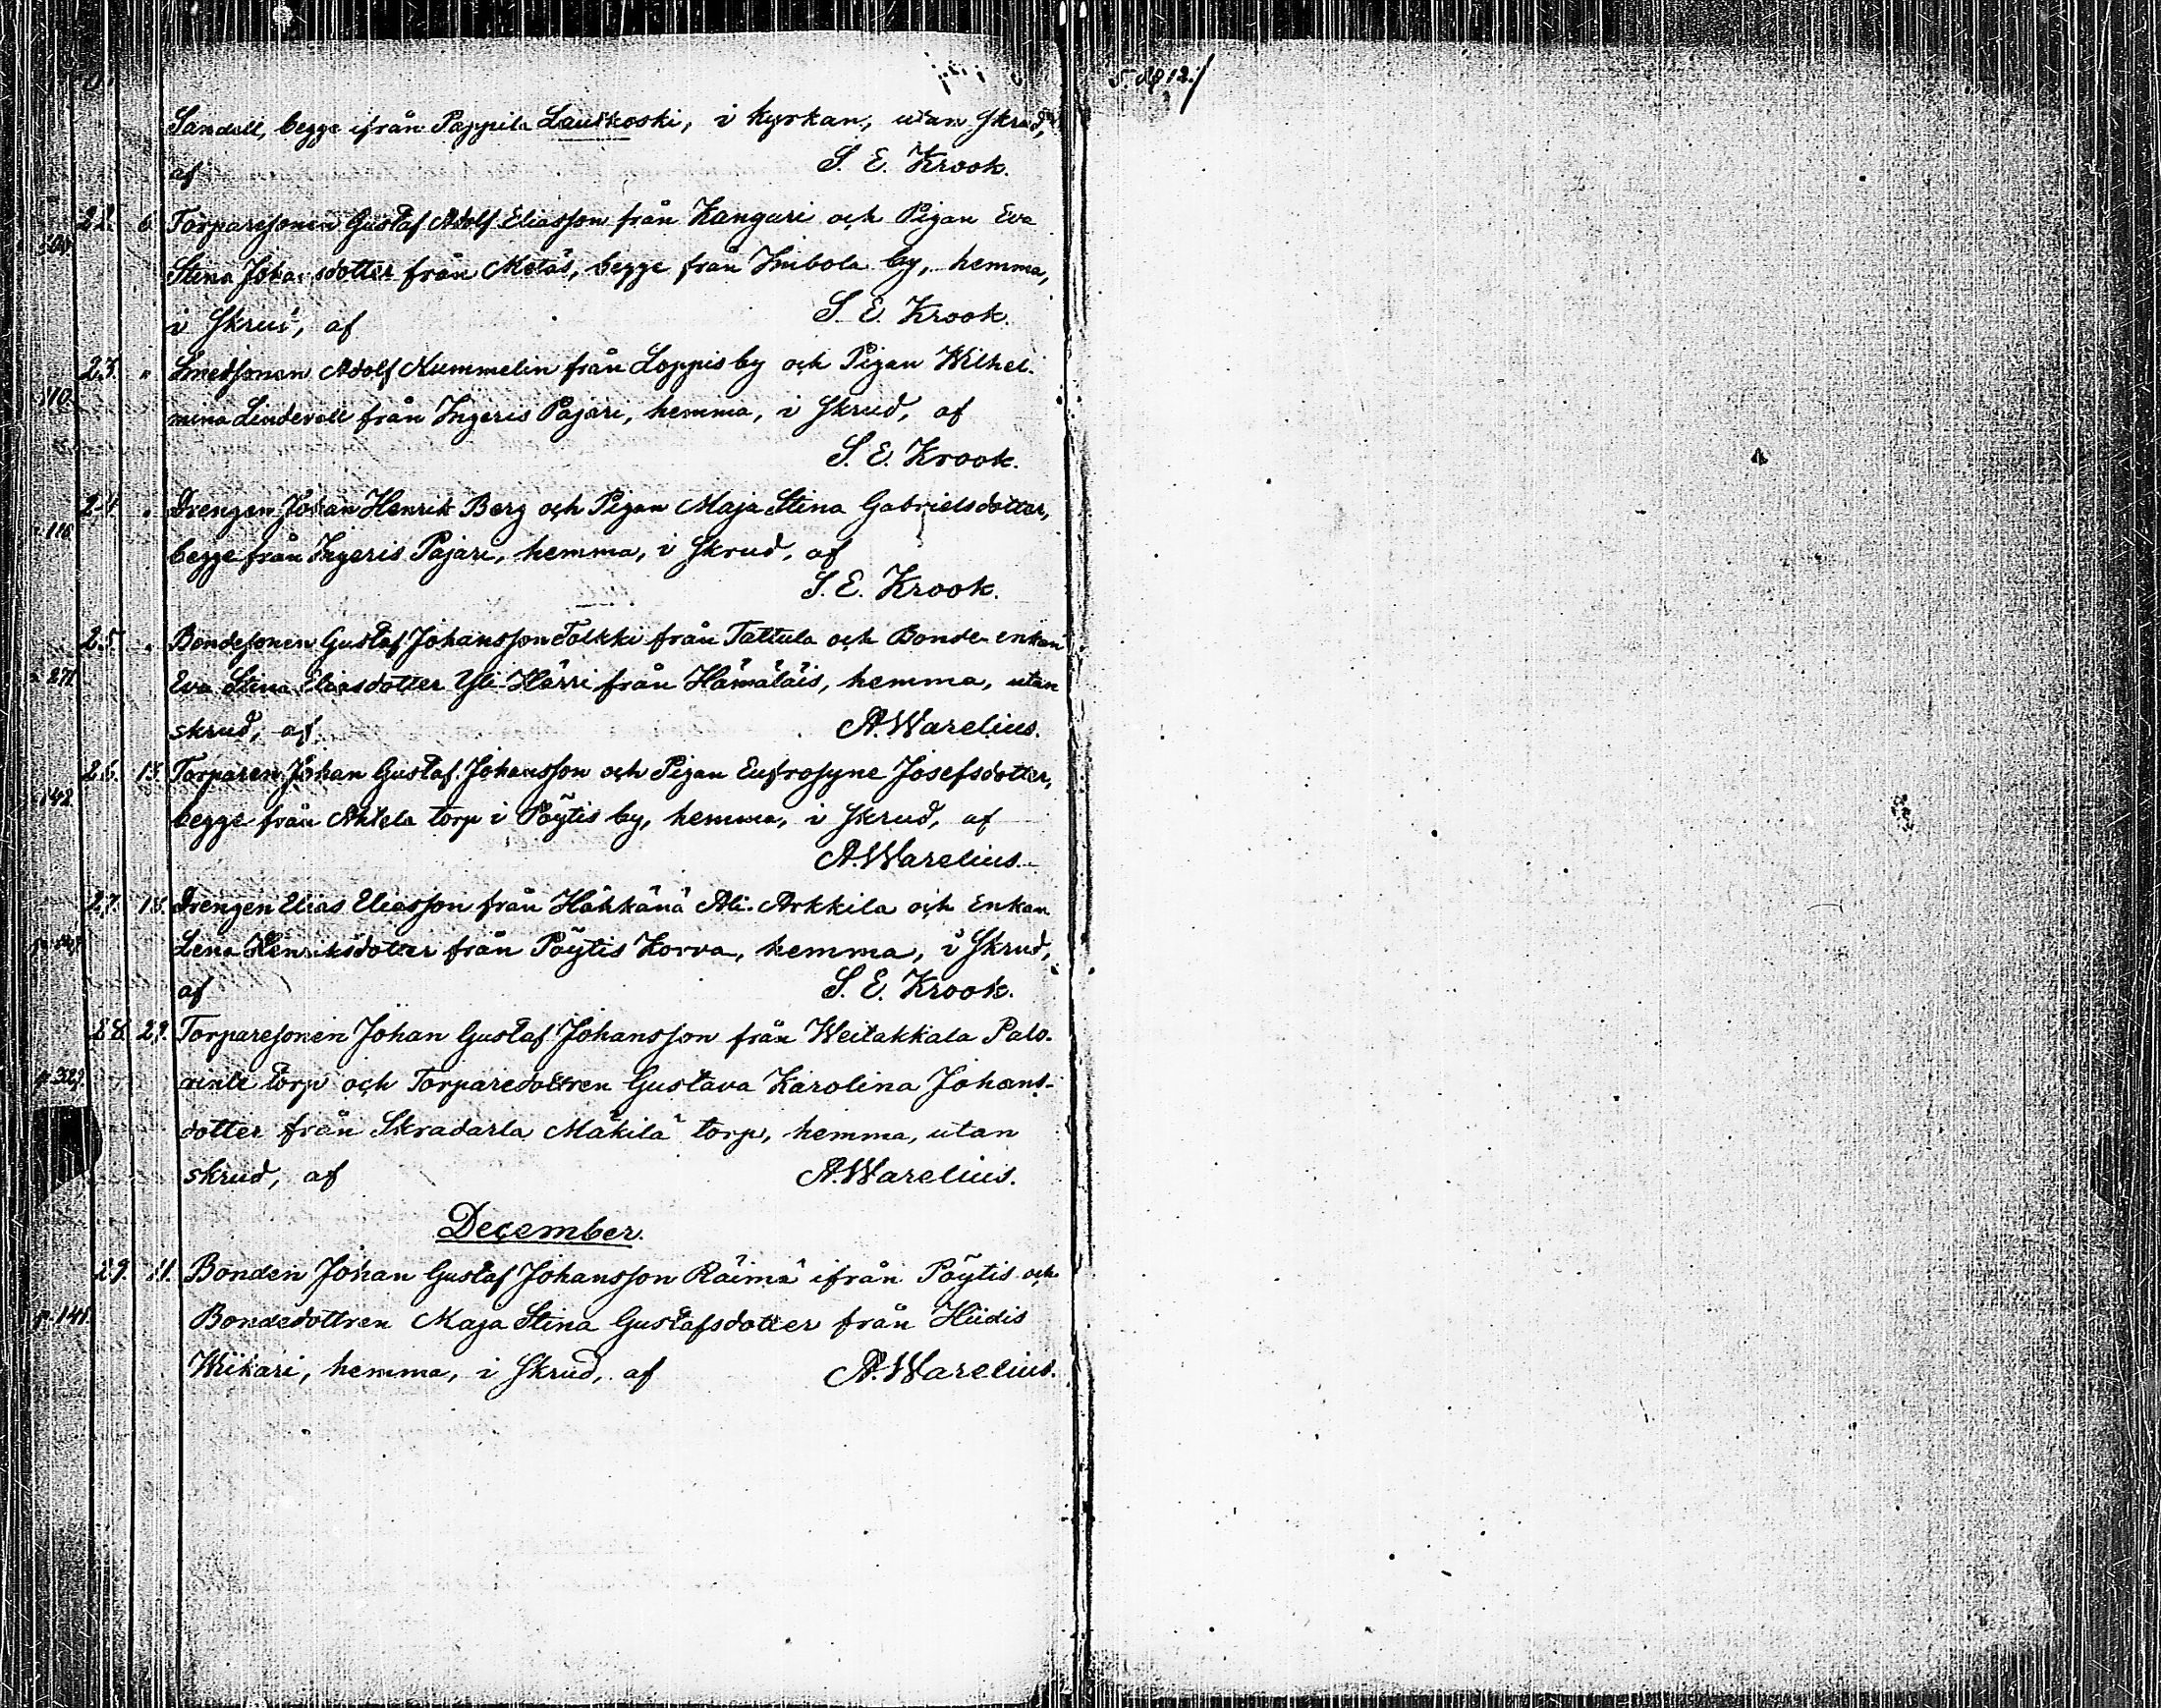 Sandell, begge ifrån Pappila Lauskoski, i kyrkan, utan skrud,
af S. E. Krook.
22. 6. Torparesonen Gustaf Adolf Eliasson från Kanguri och Pigan Eva
Stina Johansdotter från Metäs, begge från Imbola by, hemma,
i skrud, af S. E. Krook.
23. " Smedsonen Adolf Nummelin från Loppis by och Pigan Wilhel-
110. mina Lindevall från Ingeris Pajari, hemma, i skrud, af
S. E. Krook.
24. " Drengen Johan Henrik Berg och Pigan Maja Stina Gabrielsdotter,
begge från Ingeris Pajari, hemma, i skrud, af
S. E. Krook.
25. " Bondesonen Gustaf Johansson Tolkki från Tattula och Bonde-enkan
Eva Stina Eliasdotter Yli-Härri från Hämäläis, hemma, utan
skrud, af A. Warelius.
26. 13. Torparen Johan Gustaf Johansson och Pigan Eufrosyne Josefsdotter,
142. begge från Ahtela torp i Pöytis by, hemma, i skrud, af
A. Warelius.
27. 18. Drengen Elias Eliasson från Hähkänä Ali-Arkkila och Enkan
Lena Henriksdotter från Pöytis Korva, hemma, i skrud,
af S. E. Krook.
28. 29. Torparesonen Johan Gustaf Johansson från Weitakkala Palo-
p. 329. rinte torp och Torparedottren Gustava Karolina Johans-
dotter från Skradarla Mäkilä torp, hemma, utan
skrud, af A. Warelius.
December.
29. 11. Bonden Johan Gustaf Johansson Räimä ifrån Pöytis och
p. 141. Bondedottren Maja Stina Gustafsdotter från Hiidis
Wiikari, hemma, i skrud, af A. Warelius.